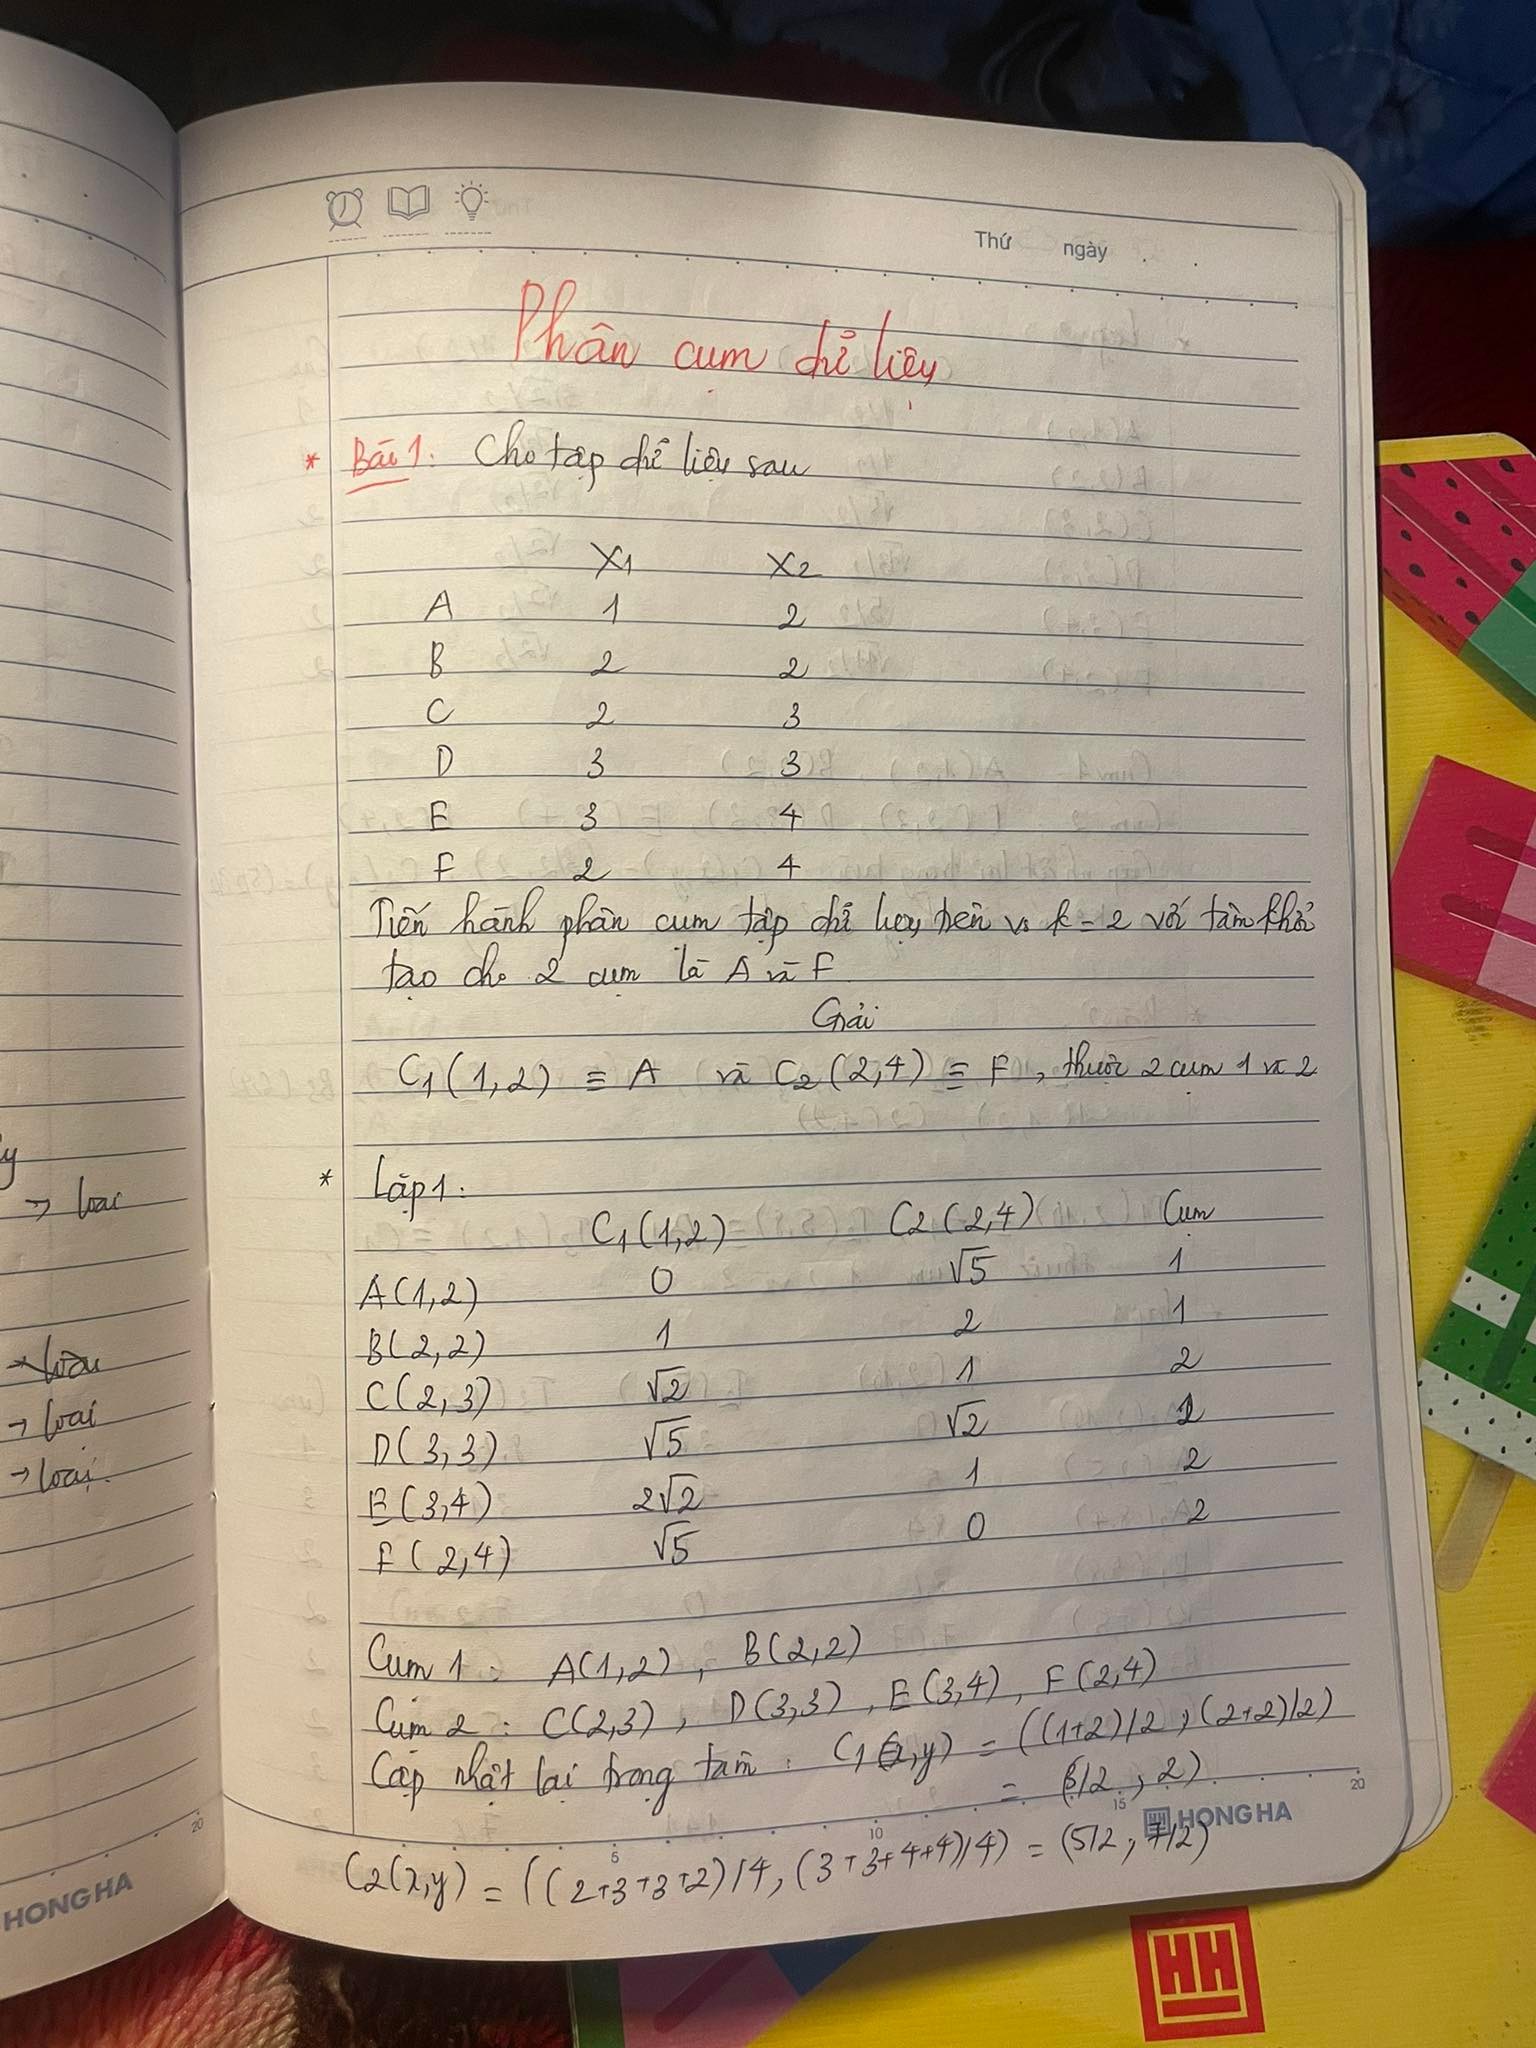 Thứ ngày . .
Phân cụm dữ liệu
* Bài 1: Cho tập dữ liệu sau
X1 X2
A 1 2
B 2 2
C 2 3
D 3 3
E 3 4
F 2 4
Tiến hành phân cụm tập dữ liệu trên vs k = 2 với tâm khởi
tạo cho 2 cụm là A và F
Giải
C1(1,2) ≡ A và C2(2,4) ≡ F, thuộc 2 cụm 1 và 2
* Lặp 1:
C1(1,2) C2(2,4) Cụm
A(1,2) 0 √5 1
B(2,2) 1 2 1
C(2,3) √2 1 2
D(3,3) √5 √2 2
E(3,4) 2√2 1 2
F(2,4) √5 0 2
Cụm 1: A(1,2), B(2,2)
Cụm 2: C(2,3), D(3,3), E(3,4), F(2,4)
Cập nhật lại trọng tâm: C1(x,y) = ((1+2)/2, (2+2)/2)
= (3/2, 2)
5 10 15 20
HONG HA
C2(x,y) = ((2+3+3+2)/4, (3+3+4+4)/4) = (5/2, 7/2)
→ loại
→ loại
→ loại.
20
HONG HA
HH